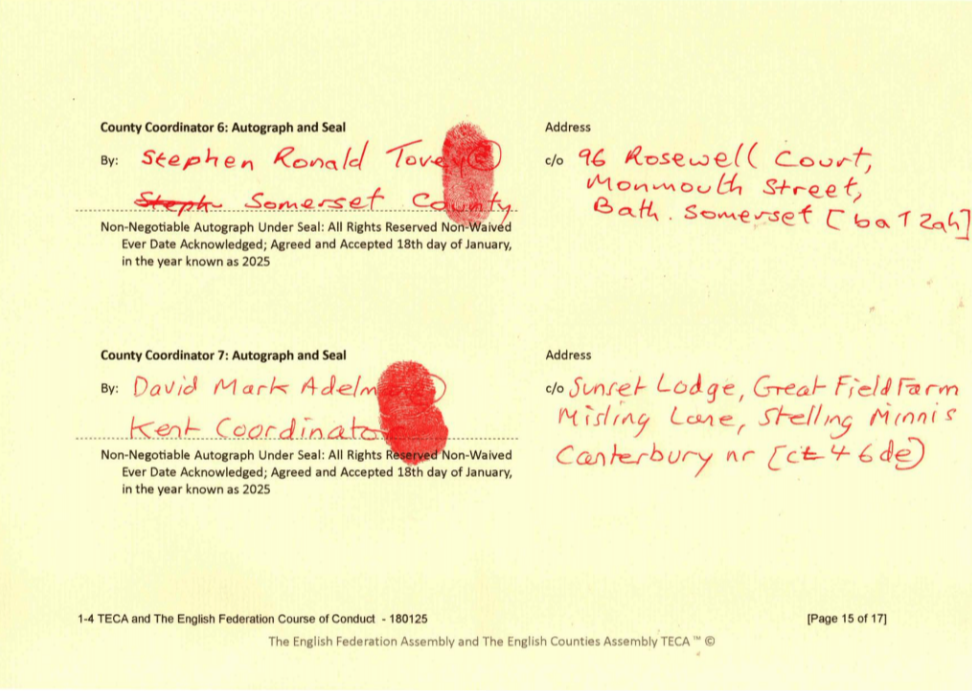 County Coordinator 6: Autograph and Seal
Address
By: Stephen Ronald Tovey ©
c/o 96 Rosewell Court,
Steph Somerset County
Monmouth Street,
Bath. Somerset [ba1 2ah]
Non-Negotiable Autograph Under Seal: All Rights Reserved Non-Waived
Ever Date Acknowledged; Agreed and Accepted 18th day of January,
in the year known as 2025
County Coordinator 7: Autograph and Seal
Address
By: David Mark Adelm
c/o Sunset Lodge, Great Field Farm
Kent Coordinator
Misling Lane, Stelling Minnis
Canterbury nr [ct4 6de]
Non-Negotiable Autograph Under Seal: All Rights Reserved Non-Waived
Ever Date Acknowledged; Agreed and Accepted 18th day of January,
in the year known as 2025
1-4 TECA and The English Federation Course of Conduct - 180125
[Page 15 of 17]
The English Federation Assembly and The English Counties Assembly TECA ™ ©